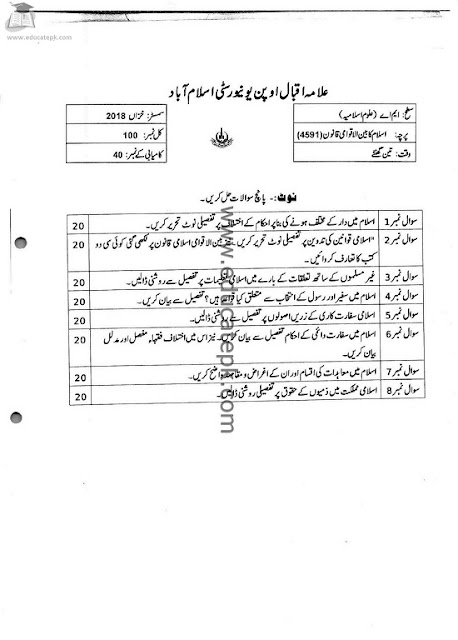 www.educatepk.com
علامہ اقبال اوپن یونیورسٹی اسلام آباد
سطح: ایم اے (علوم اسلامیہ)
سمسٹر: خزاں 2018
پرچہ: اسلام کا بین الاقوامی قانون (4591)
کل نمبر: 100
وقت: تین گھنٹے
کامیابی کے نمبر: 40
نوٹ:- پانچ سوالات حل کریں۔
سوال نمبر 1 اسلام میں دار کے مختلف ہونے کی بنا پر احکام کے اختلاف پر تفصیلی نوٹ تحریر کریں۔ 20
سوال نمبر 2 "اسلامی قوانین کی تدوین پر تفصیلی نوٹ تحریر کریں۔ نیز بین الاقوامی اسلامی قانون پر لکھی گئی کوئی سی دو 20
کتب کا تعارف کروائیں۔
سوال نمبر 3 غیر مسلموں کے ساتھ تعلقات کے بارے میں اسلامی تعلیمات پر تفصیل سے روشنی ڈالیں۔ 20
سوال نمبر 4 اسلام میں سفیر اور رسول کے انتخاب سے متعلق کیا قواعد ہیں؟ تفصیل سے بیان کریں۔ 20
سوال نمبر 5 اسلامی سفارت کاری کے زریں اصولوں پر تفصیل سے روشنی ڈالیں۔ 20
سوال نمبر 6 اسلام میں سفارت دائمی کے احکام تفصیل سے بیان کریں۔ نیز اس میں اختلاف فقہاء مفصل اور مدلل 20
بیان کریں۔
سوال نمبر 7 اسلام میں معاہدات کی اقسام اور ان کے اغراض و مقاصد واضح کریں۔ 20
سوال نمبر 8 اسلامی مملکت میں ذمیوں کے حقوق پر تفصیلی روشنی ڈالیں۔ 20
www.educatepk.com